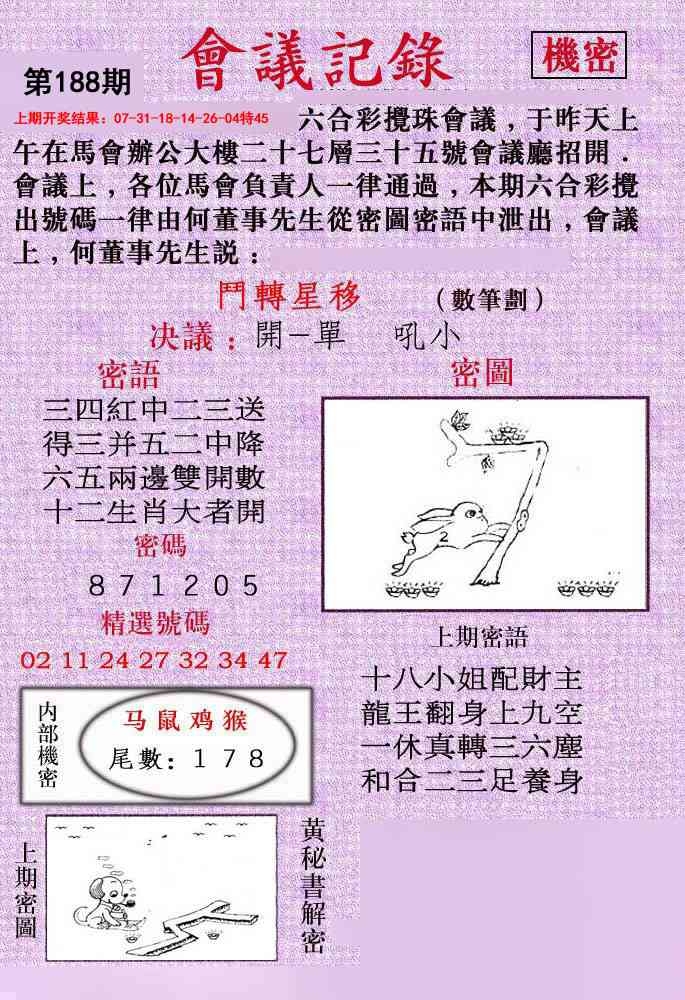 會議記錄
機密
第188期
上期开奖结果：07-31-18-14-26-04特45
六合彩攪珠會議，于昨天上
午在馬會辦公大樓二十七層三十五號會議廳招開．
會議上，各位馬會負責人一律通過，本期六合彩攪
出號碼一律由何董事先生從密圖密語中泄出，會議
上，何董事先生説：
鬥轉星移 （數筆劃）
决議：開—單 吼小
密語
三四紅中二三送
得三并五二中降
六五兩邊雙開數
十二生肖大者開
密碼
871205
精選號碼
02 11 24 27 32 34 47
密圖
2
上期密語
十八小姐配財主
龍王翻身上九空
一休真轉三六塵
和合二三足養身
内部機密
马鼠鸡猴
尾數：178
上期密圖
黄秘書解密